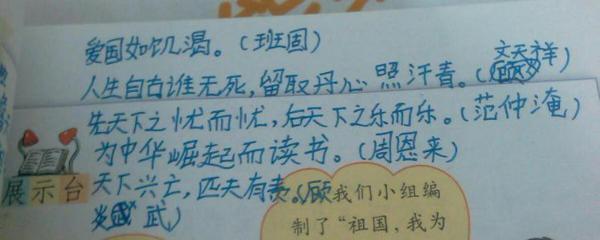 爱国如饥渴。(班固)
人生自古谁无死,留取丹心照汗青。(文天祥)
先天下之忧而忧,后天下之乐而乐。(范仲淹)
为中华崛起而读书。(周恩来)
展示台
天下兴亡,匹夫有责。(顾
炎武)
我们小组编
制了“祖国,我为